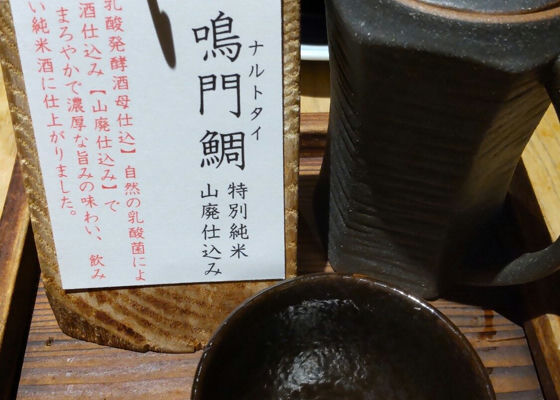 ナルトタイ
鳴門鯛
特別純米
山廃仕込み
乳酸発酵酒母仕込】自然の乳酸菌によ
酒仕込み【山廃仕込み】で
まろやかで濃厚な旨みの味わい、飲み
い純米酒に仕上がりました。